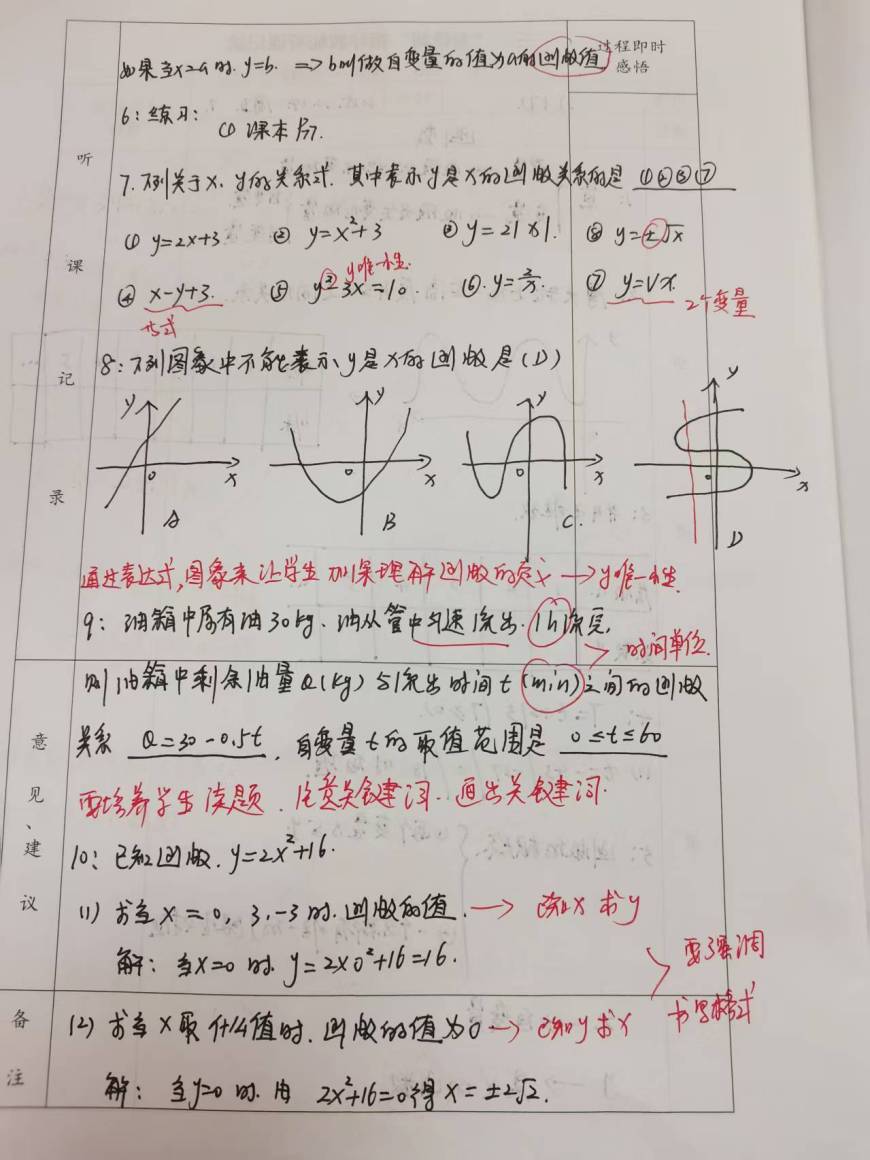 如果当x=a时, y=b. ⇒ b叫做自变量的值为a时的函数值
过程即时
感悟
6: 练习:
(1) 课本
听
7. 下列关于x、y的关系式. 其中表示y是x的函数关系的是 ①②③⑦
① y=2x+3 ② y=x²+3 ③ y=2|x|. ⑧ y=±√x
课
④ x-y+3. ⑤ y²-3x=10. ⑥. y=3/x. ⑦ y=√x.
y唯一性.
2个变量
代式
记
8: 下列图象中不能表示y是x的函数是 (D)
y y y y
0 x 0 x 0 x 0 x
录
A B C. D
通过表达式,图象来让学生加深理解函数的定义 → y唯一性.
9: 油箱中原有油30kg. 油从管中匀速流出. 1h流完,
时间单位.
则油箱中剩余油量Q(kg)与流出时间t(min)之间的函数
意
关系 Q=30-0.5t . 自变量t的取值范围是 0≤t≤60
见
、
要培养学生读题. 注意关键词. 画出关键词.
建
10: 已知函数. y=2x²+16.
议
(1) 求当x=0, 3, -3时. 函数的值. → 已知x求y
要强调
书写格式
解: 当x=0时. y=2×0²+16=16.
备
(2) 求当x取什么值时. 函数的值为0 → 已知y求x
注
解: 当y=0时. 由 2x²+16=0得x=±2√2.